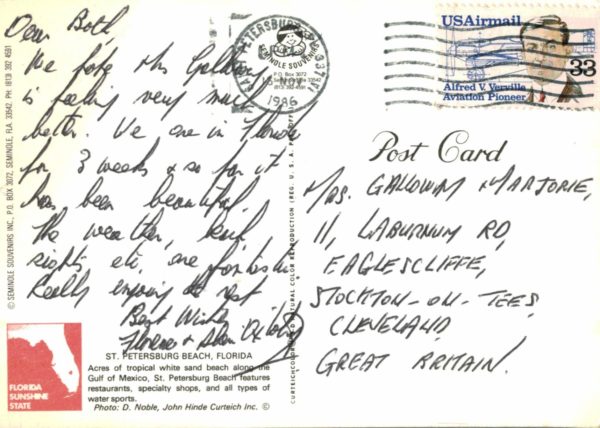 Dear Both,
We hope Mrs Galloway
is feeling very much
better. We are in Florida
for 3 weeks & so far it
has been beautiful,
the weather,
sights etc. are fantastic
Really enjoying the rest
Best Wishes
Florence &
ST. PETERSBURG BEACH, FLORIDA
Acres of tropical white sand beach along the
Gulf of Mexico, St. Petersburg Beach features
restaurants, specialty shops, and all types of
water sports.
Photo: D. Noble, John Hinde Curteich Inc. ©
FLORIDA
SUNSHINE
STATE
© SEMINOLE SOUVENIRS INC., P.O. BOX 3072, SEMINOLE, FLA. 33542. PH: (813) 392 4591
CURTEICHCOLOR® 3-D NATURAL COLOR REPRODUCTION (REG. U.S.A. PAT. OFF.)
ST PETERSBURG FL 337
SEMINOLE SOUVENIRS
P.O. Box 3072
33542
(813) 392-4591
NOV
1986
USAirmail
33
Alfred V. Verville
Aviation Pioneer
Post Card
MRS. GALLOWAY MARJORIE,
11, LABURNUM RD,
EAGLESCLIFFE,
STOCKTON-ON-TEES,
CLEVELAND,
GREAT BRITAIN.